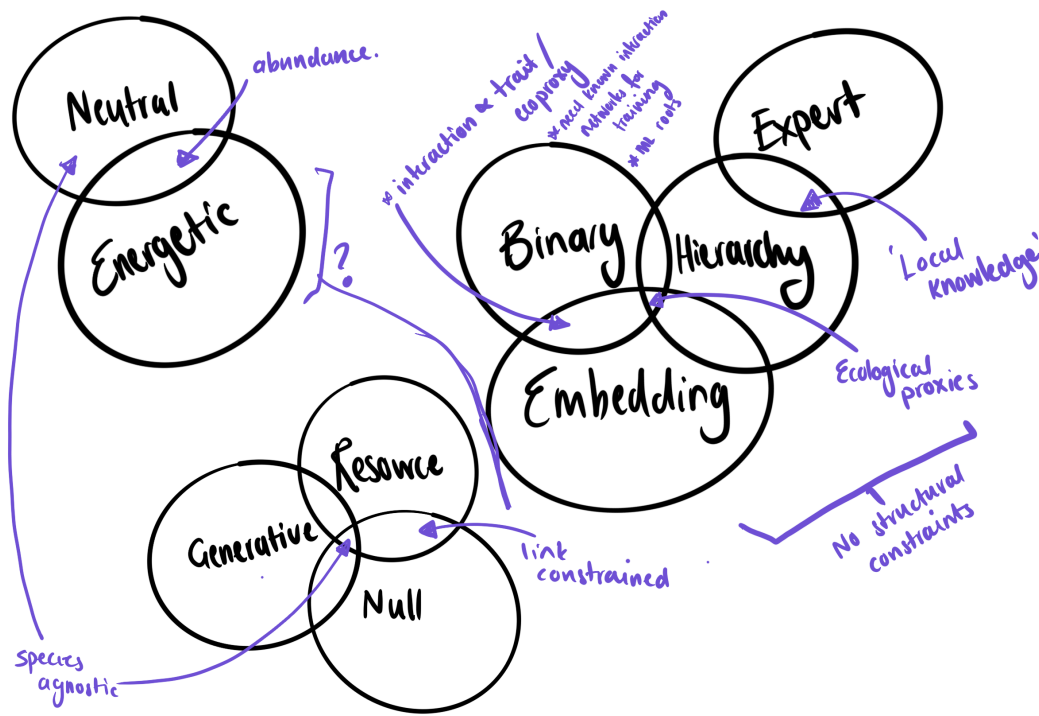 Neutral
abundance.
Energetic
?
* interaction ∝ trait /
ecoproxy
* need known interaction
networks for
training
* ML roots
Expert
Binary
Hierarchy
'Local
knowledge'
Embedding
Ecological
proxies
No structural
constraints
Resource
Generative
Null
link
constrained
species
agnostic